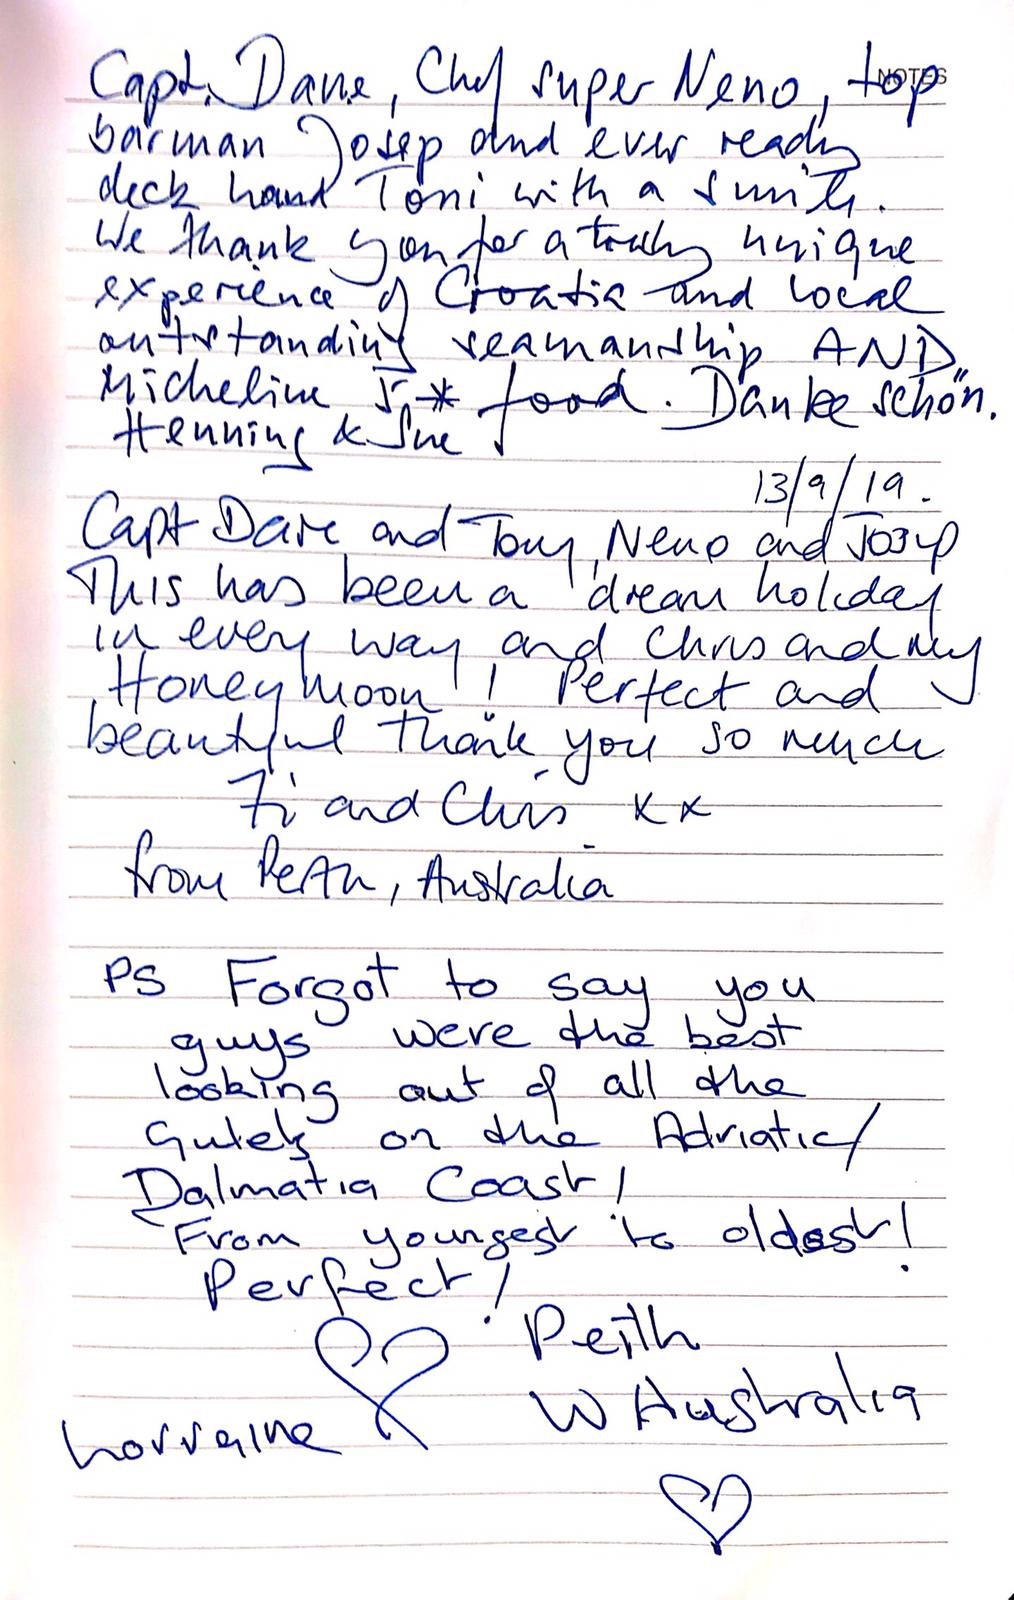 NOTES
Capt. Dane, Chef super Neno, top
barman Josep and ever ready
deck hand Toni with a smile.
We thank you for a truly unique
experience of Croatia and local
outstanding seamanship AND
Micheline 5 * food. Danke schön.
Henning & Sue
13/9/19.
Capt Dare and Tony, Neno and Josip
This has been a dream holiday
in every way and Chris and my
Honeymoon! Perfect and
beautiful Thank you so much
Fi and Chris xx
from Perth, Australia
PS Forgot to say you
guys were the best
looking out of all the
Gulets on the Adriatic/
Dalmatia Coast!
From youngest to oldest!
Perfect!
Perth
W Australia
Lorraine